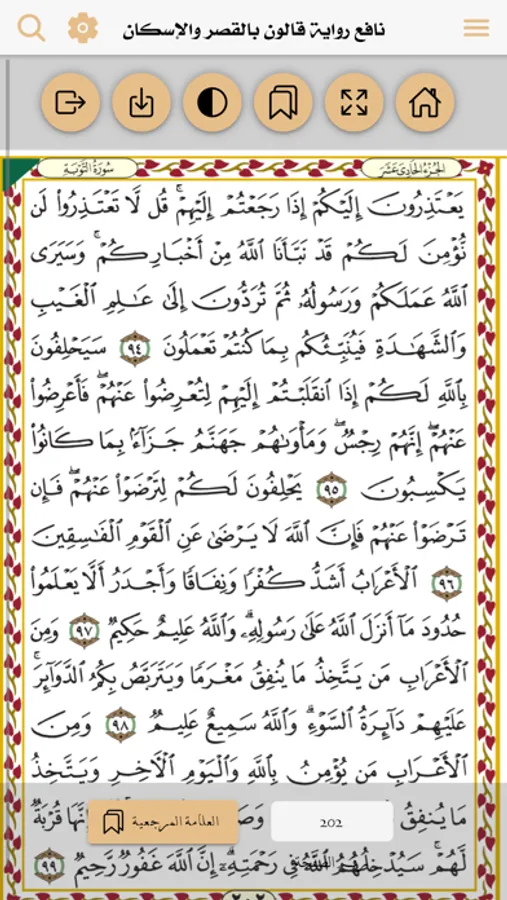 نافع رواية قالون بالقصر والإسكان
الجزء الحادي عشر
سورة التوبة
يَعْتَذِرُونَ إِلَيْكُمْ إِذَا رَجَعْتُمْ إِلَيْهِمْ ۚ قُل لَّا تَعْتَذِرُوا لَن
نُّؤْمِنَ لَكُمْ قَدْ نَبَّأَنَا اللَّهُ مِنْ أَخْبَارِكُمْ ۚ وَسَيَرَى
اللَّهُ عَمَلَكُمْ وَرَسُولُهُ ثُمَّ تُرَدُّونَ إِلَىٰ عَٰلِمِ الْغَيْبِ
وَالشَّهَٰدَةِ فَيُنَبِّئُكُم بِمَا كُنتُمْ تَعْمَلُونَ ٩٤ سَيَحْلِفُونَ
بِاللَّهِ لَكُمْ إِذَا انقَلَبْتُمْ إِلَيْهِمْ لِتُعْرِضُوا عَنْهُمْ ۖ فَأَعْرِضُوا
عَنْهُمْ ۖ إِنَّهُمْ رِجْسٌ ۖ وَمَأْوَىٰهُمْ جَهَنَّمُ جَزَآءً بِمَا كَانُوا
يَكْسِبُونَ ٩٥ يَحْلِفُونَ لَكُمْ لِتَرْضَوْا عَنْهُمْ ۖ فَإِن
تَرْضَوْا عَنْهُمْ فَإِنَّ اللَّهَ لَا يَرْضَىٰ عَنِ الْقَوْمِ الْفَٰسِقِينَ
٩٦ الْأَعْرَابُ أَشَدُّ كُفْرًا وَنِفَاقًا وَأَجْدَرُ أَلَّا يَعْلَمُوا
حُدُودَ مَآ أَنزَلَ اللَّهُ عَلَىٰ رَسُولِهِ ۗ وَاللَّهُ عَلِيمٌ حَكِيمٌ ٩٧ وَمِنَ
الْأَعْرَابِ مَن يَتَّخِذُ مَا يُنفِقُ مَغْرَمًا وَيَتَرَبَّصُ بِكُمُ الدَّوَآئِرَ ۚ
عَلَيْهِمْ دَآئِرَةُ السَّوْءِ ۗ وَاللَّهُ سَمِيعٌ عَلِيمٌ ٩٨ وَمِنَ
الْأَعْرَابِ مَن يُؤْمِنُ بِاللَّهِ وَالْيَوْمِ الْآخِرِ وَيَتَّخِذُ
مَا يُنفِقُ إِنَّهَا قُرْبَةٌ
202
العلامة المرجعية
لَّهُمْ ۚ سَيُدْخِلُهُمُ اللَّهُ فِي رَحْمَتِهِ ۗ إِنَّ اللَّهَ غَفُورٌ رَّحِيمٌ ٩٩